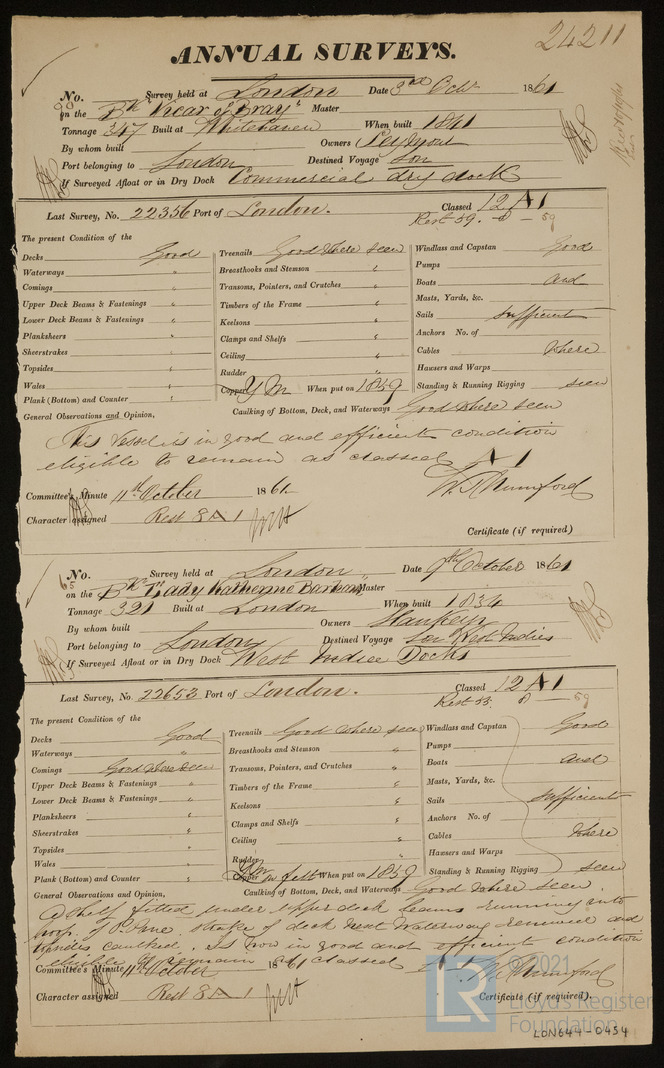 24211
ANNUAL SURVEYS.
No. 90 Survey held at London Date 3rd Octr 1861
on the Bk "Vicar of Bray" Master
Tonnage 347 Built at Whitehaven When built 1841
By whom built Owners
Port belonging to London Destined Voyage Lon
If Surveyed Afloat or in Dry Dock Commercial dry dock
Last Survey, No. 22356 Port of London. Classed 12 A1
Rest 59. 8 - 59
The present Condition of the
Decks Good
Waterways "
Comings "
Upper Deck Beams & Fastenings "
Lower Deck Beams & Fastenings "
Planksheers "
Sheerstrakes "
Topsides "
Wales "
Plank (Bottom) and Counter "
Treenails Good where seen
Breasthooks and Stemson "
Transoms, Pointers, and Crutches "
Timbers of the Frame "
Keelsons "
Clamps and Shelfs "
Ceiling "
Rudder "
Copper Y M When put on 1859
Windlass and Capstan Good
Pumps
Boats and
Masts, Yards, &c.
Sails sufficient
Anchors No. of
Cables where
Hawsers and Warps
Standing & Running Rigging seen
General Observations and Opinion, Caulking of Bottom, Deck, and Waterways Good where seen
This Vessel is in good and efficient condition
eligible to remain as classed A1
W. Mumford
Committee's Minute 11th October 1861
Character assigned Rest 8 A1
Certificate (if required)
No. 65 Survey held at London Date 9th October 1861
on the Bk Lady Katherine Barham Master
Tonnage 321 Built at London When built 1834
By whom built Owners Hankeys
Port belonging to London Destined Voyage Lon West Indies
If Surveyed Afloat or in Dry Dock West India Docks
Last Survey, No. 22653 Port of London. Classed 12 A1
Rest 53. 8 - 59
The present Condition of the
Decks Good
Waterways "
Comings Good where seen
Upper Deck Beams & Fastenings "
Lower Deck Beams & Fastenings "
Planksheers "
Sheerstrakes "
Topsides "
Wales "
Plank (Bottom) and Counter "
Treenails Good where seen
Breasthooks and Stemson "
Transoms, Pointers, and Crutches "
Timbers of the Frame "
Keelsons "
Clamps and Shelfs "
Ceiling "
Rudder "
Copper Y M on felt When put on 1859
Windlass and Capstan Good
Pumps
Boats and
Masts, Yards, &c.
Sails sufficient
Anchors No. of
Cables where
Hawsers and Warps
Standing & Running Rigging seen
General Observations and Opinion, Caulking of Bottom, Deck, and Waterways Good where seen
A shelf fitted under upper deck beams running into
hoop. strake of deck next Waterway renewed and
topsides caulked. Is now in good and efficient condition
eligible to remain as classed A1 W. Mumford
Committee's Minute 11th October 1861
Character assigned Rest 8 A1
Certificate (if required).
LR
© 2021
Lloyd's Register
Foundation
LON644-0454